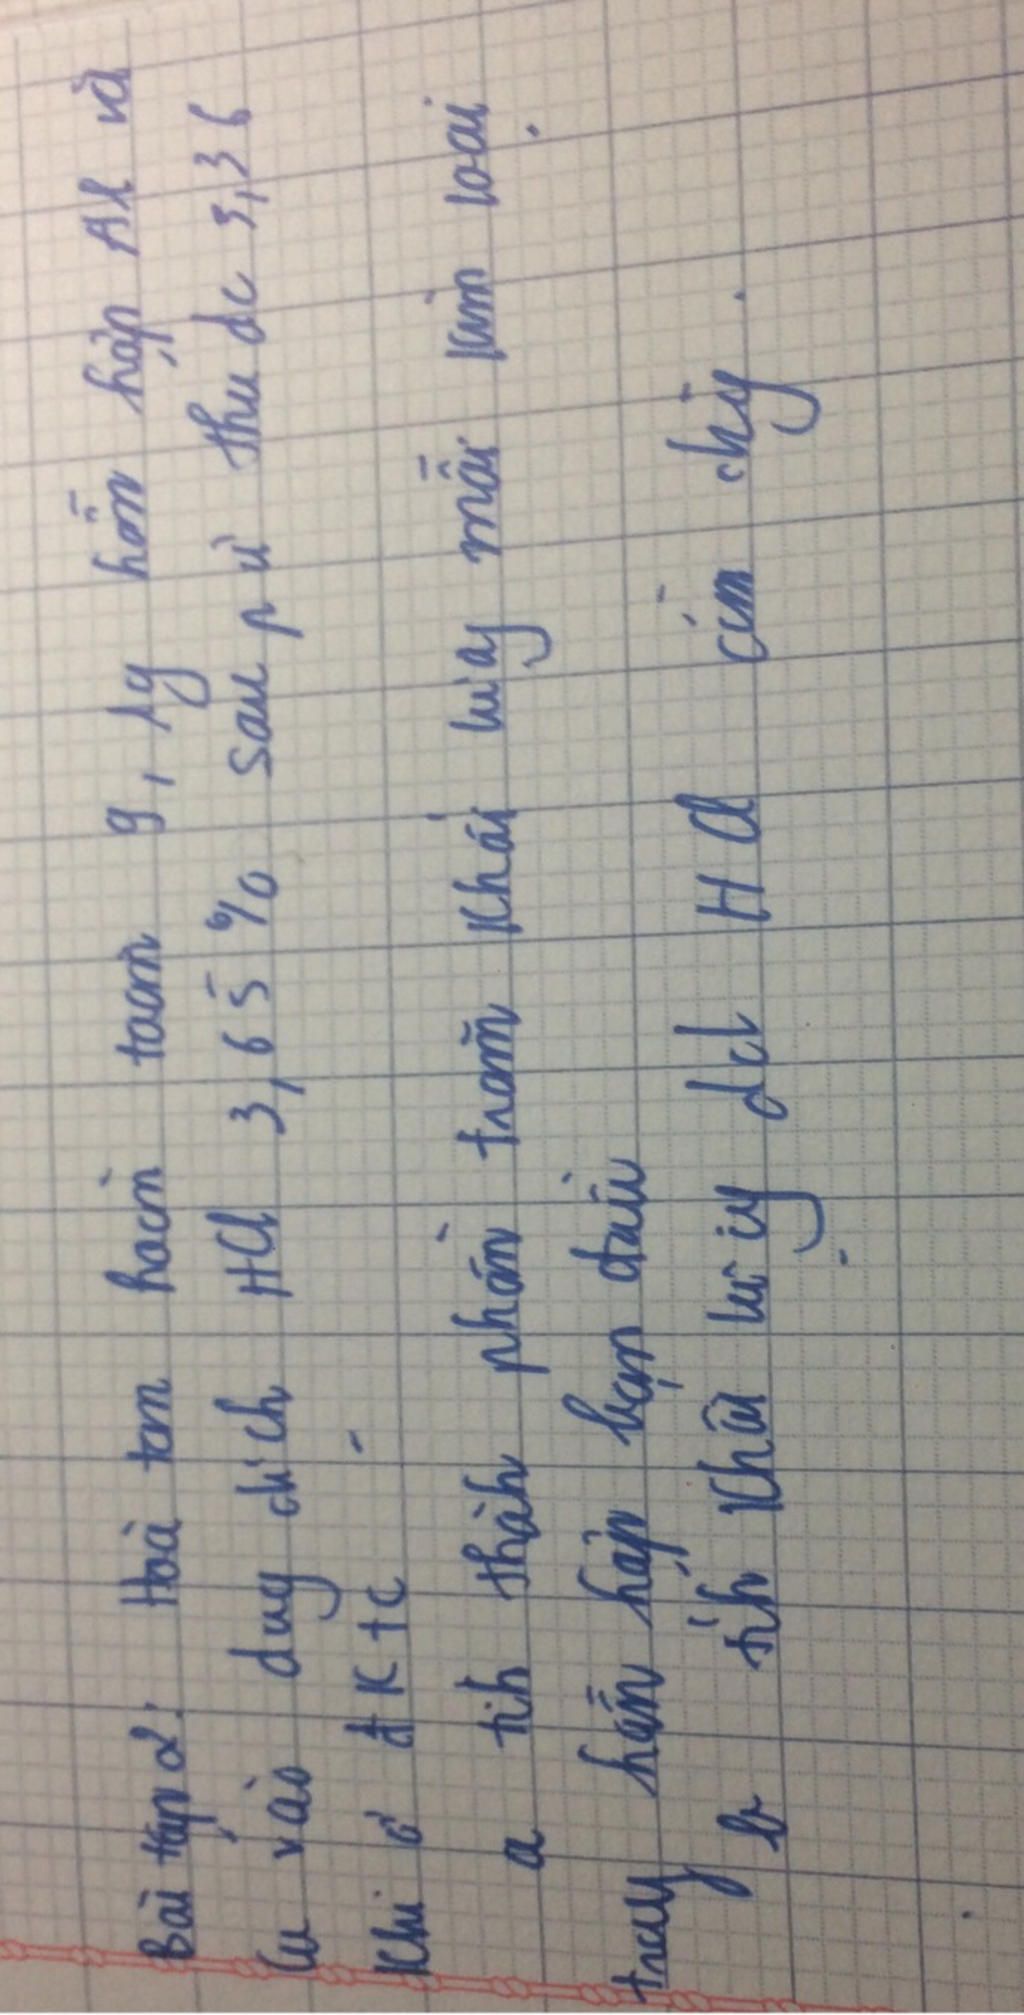 Bài tập 2: Hoà tan hoàn toàn 9,1g hỗn hợp Al và
Cu vào dung dịch HCl 3,65% sau pứ thu đc 3,36
khí ở đktc
a tíh thàh phần trăm khối lượng mỗi kim loại
trong hỗn hợp ban đầu
b tíh khối lượng dd HCl cần dùng.